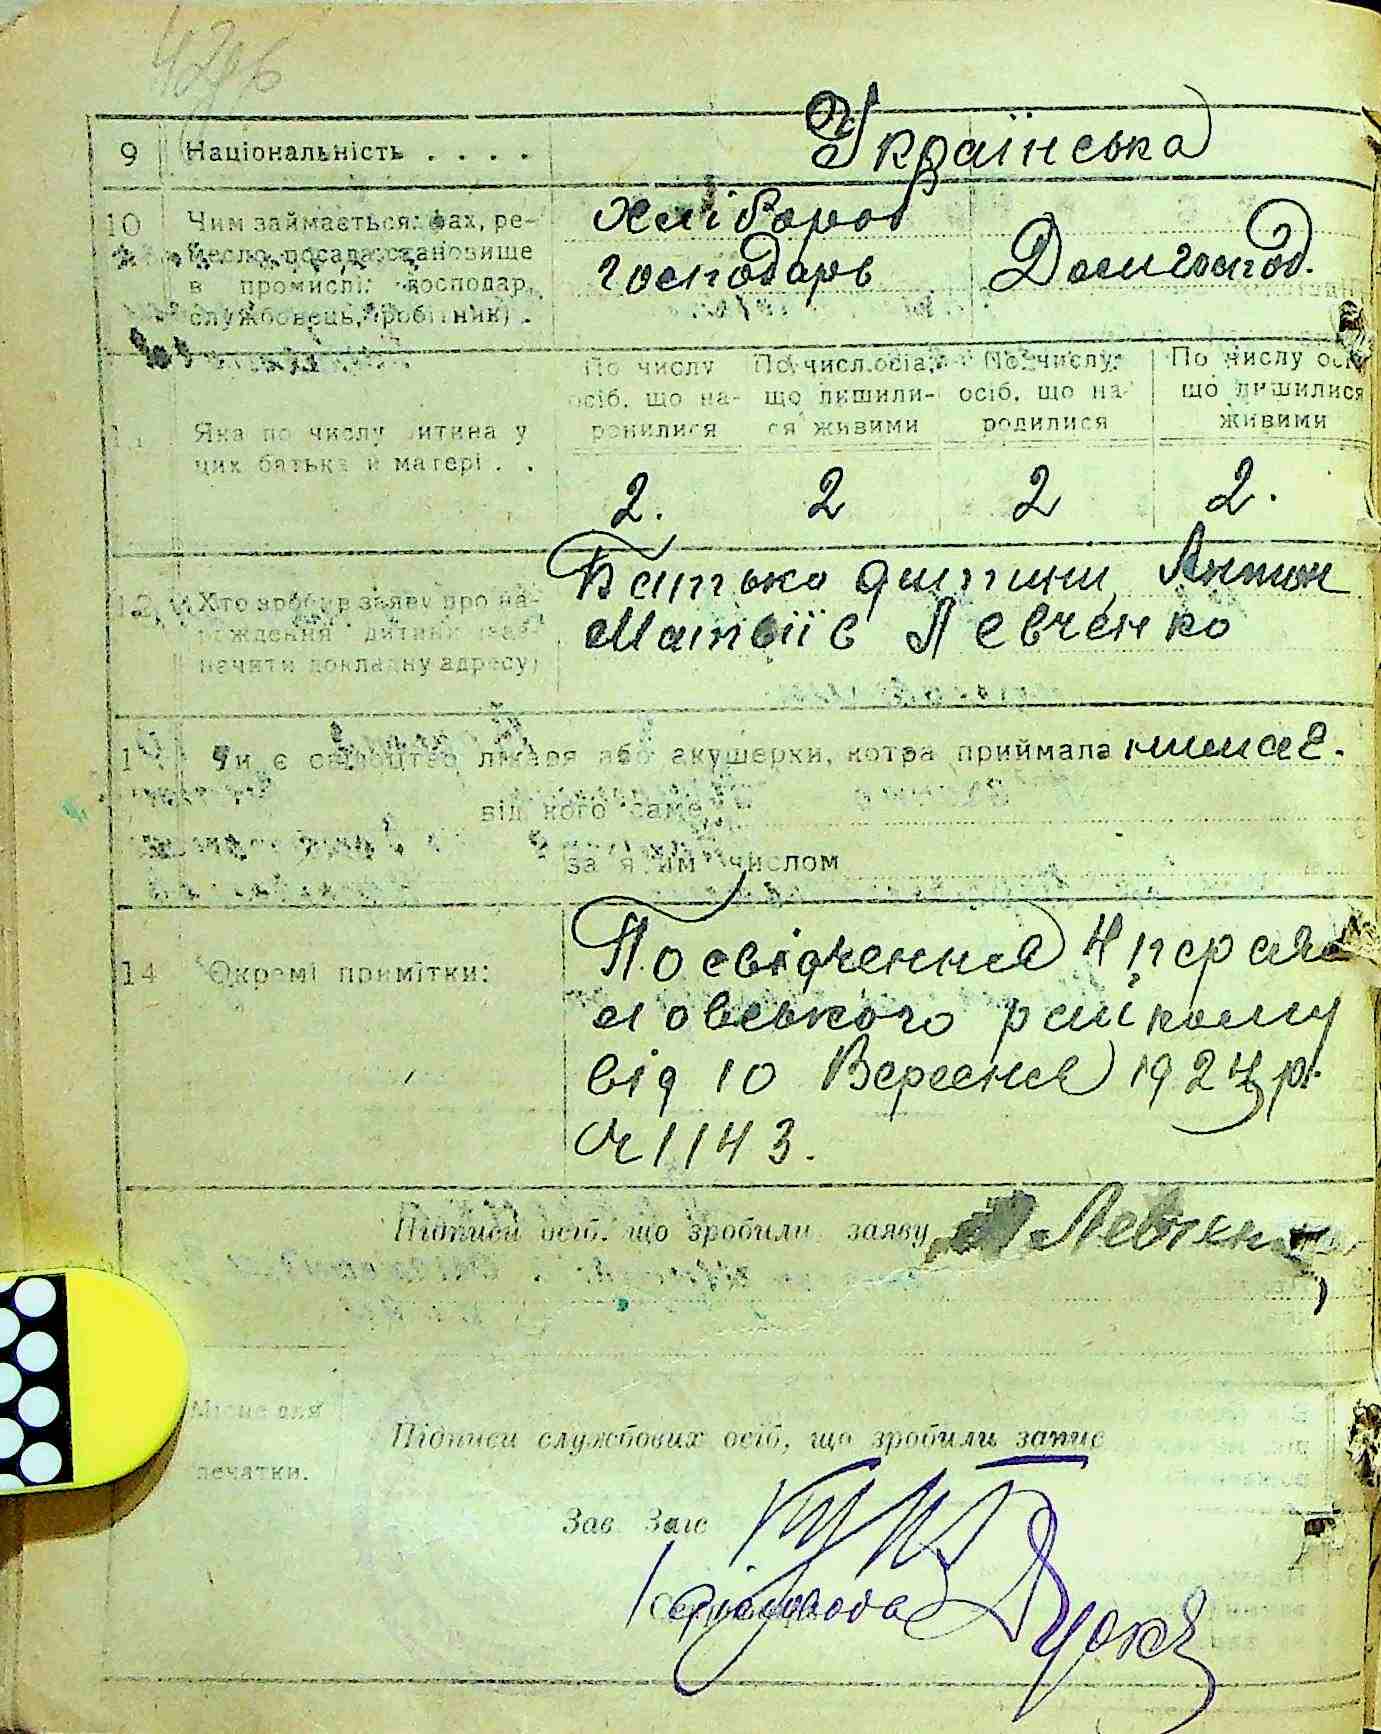 9 Національність . . . . Українська
10 Чим займається: фах, ре-
месло, посада, становище
в промислі: господар,
службовець, робітник) .
Хлібороб
господарь
Домгоспод.
11 Яка по числу дитина у
цих батька й матері . .
По числу
осіб, що на-
родилися
По числ. осіб,
що лишили-
ся живими
По числу
осіб, що на-
родилися
По числу осіб
що лишилися
живими
2. 2 2 2.
12 Хто зробив заяву про на-
рождення дитини (заз-
начити докладну адресу)
Батько дитини, Антон
Матвіїв Левченко
13 Чи є свідоцтво лікаря або акушерки, котра приймала немає.
від кого саме
за яким числом
14 Окремі примітки:
Посвідчення
ловського райкому
від 10 Вересня 1924 р.
№ 1143.
Підписи осіб, що зробили заяву Левченко
Місце для
печатки.
Підписи службових осіб, що зробили запис
Зав Загс